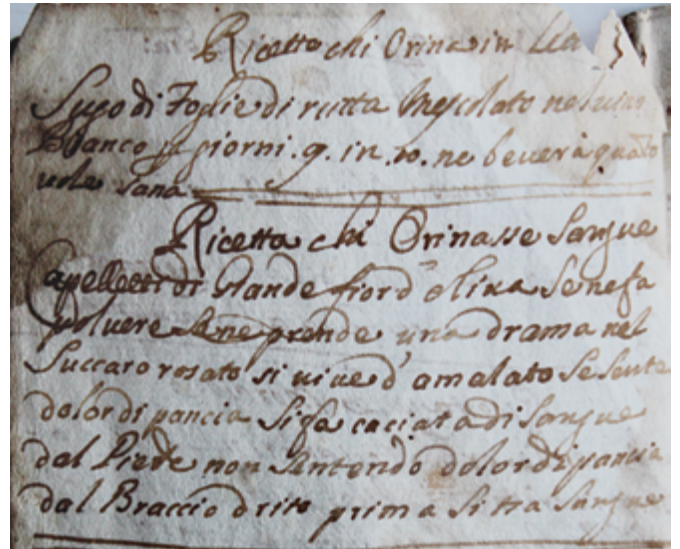 Ricetta chi Orina in
Sugo di Foglie di rutta Mescolato nel uino
Bianco p giorni .9. in .10. ne beuerà quato
uole Sana
Ricetta chi Orinasse Sangue
Capelletti di Giande fior d'oliua Se ne fa
poluere Se ne prende una drama nel
Succaro rosato si uiue d'amalato Se Sente
dolor di pancia Si fa caciata di Sangue
dal Piede non Sentendo dolor di pancia
dal Braccio drito prima Si tra Sangue